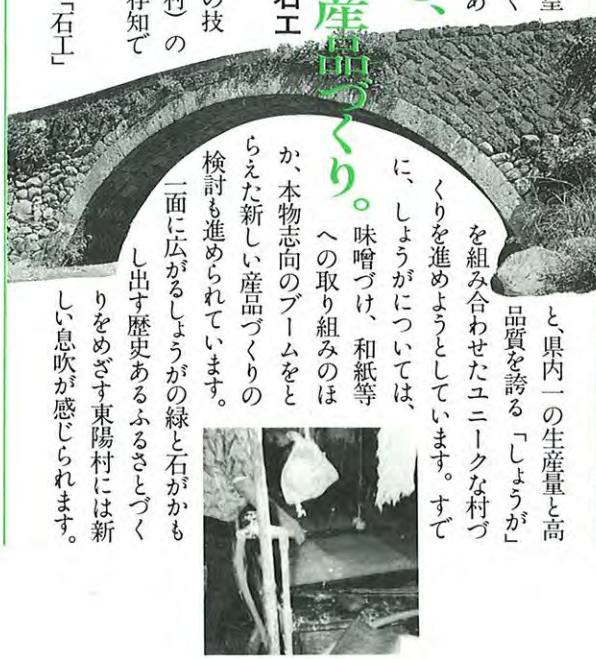 く
あ
、
産品づくり。
石工
の技
村）の
存知で
「石工」
と、県内一の生産量と高
品質を誇る「しょうが」
を組み合わせたユニークな村づ
くりを進めようとしています。すで
に、しょうがについては、
味噌づけ、和紙等
への取り組みのほ
か、本物志向のブームをと
らえた新しい産品づくりの
検討も進められています。
一面に広がるしょうがの緑と石がかも
し出す歴史あるふるさとづく
りをめざす東陽村には新
しい息吹が感じられます。